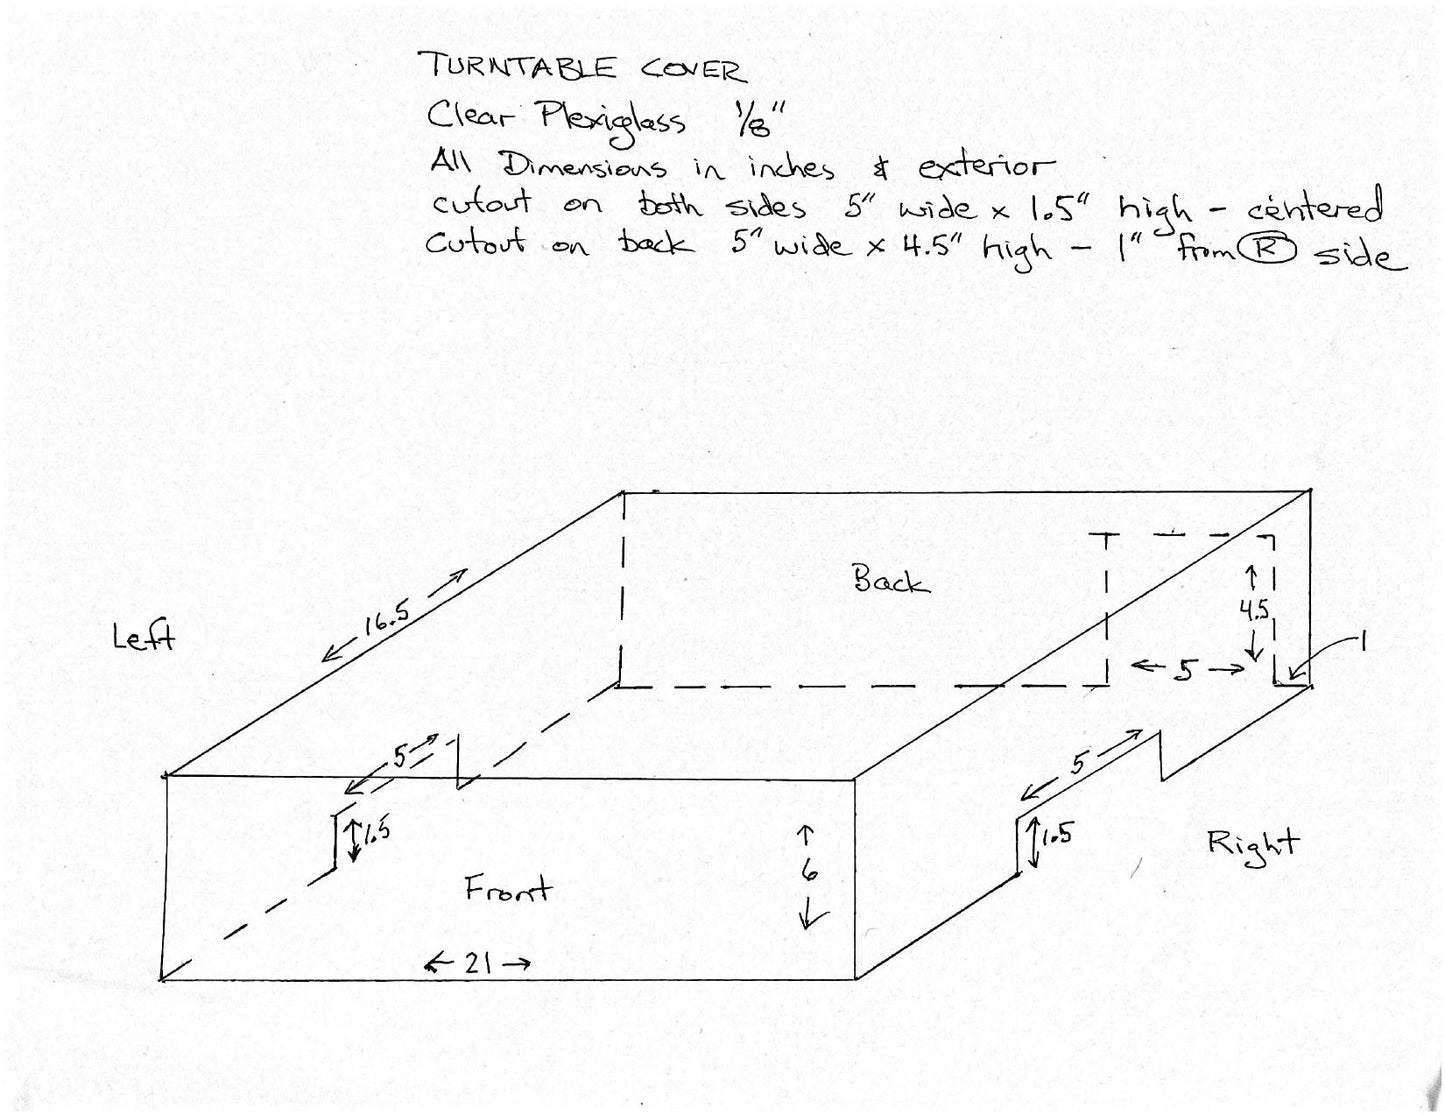 TURNTABLE COVER
Clear Plexiglass 1/8"
All Dimensions in inches & exterior
cutout on both sides 5" wide x 1.5" high - centered
Cutout on back 5" wide x 4.5" high - 1" from R side
Back
4.5
1
16.5
Left
5
5
5
1.5
1.5
Right
6
Front
21